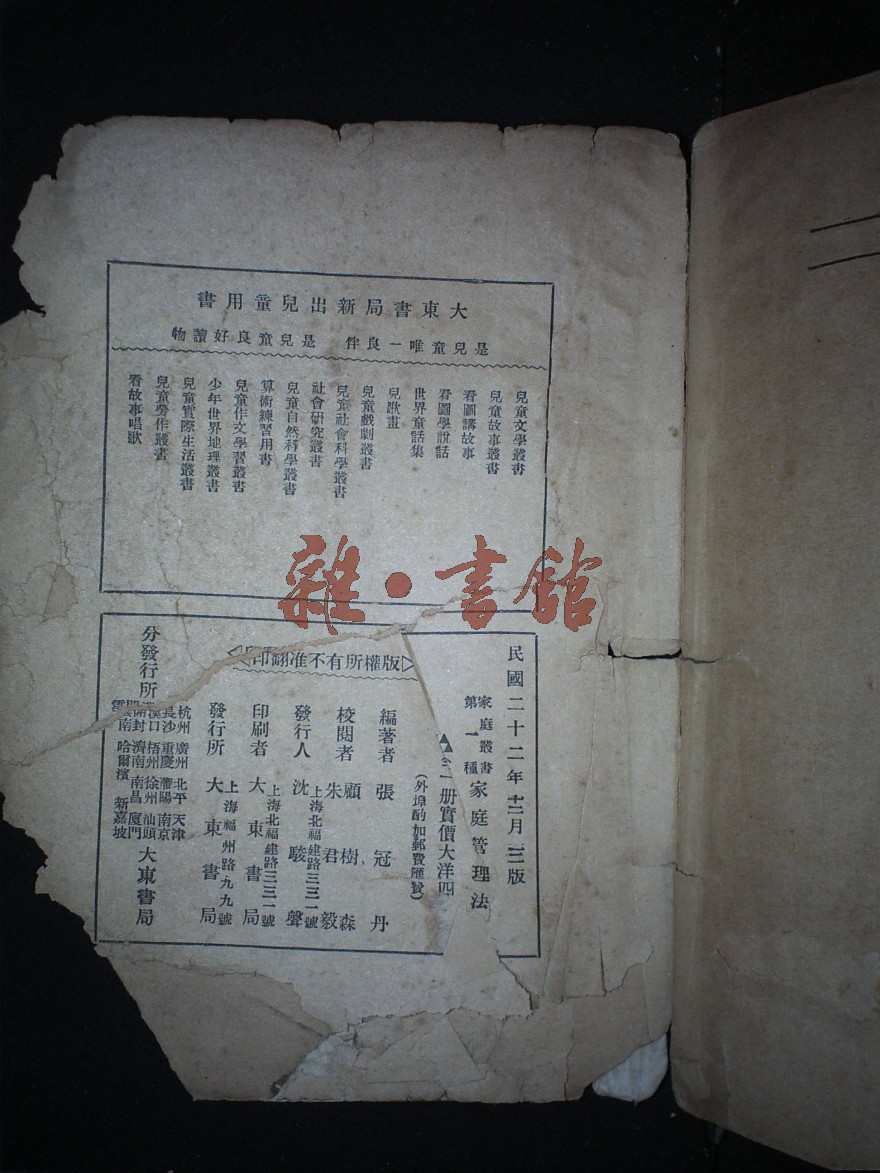 大東書局新出兒童用書
是兒童唯一良伴　是兒童良好讀物
兒童文學叢書
兒童故事叢書
看圖講故事
看圖學說話
世界童話集
兒歌畫
兒童戲劇叢書
兒童社會科學叢書
社會研究叢書
兒童自然科學叢書
算術練習用書
兒童作文學習叢書
少年世界地理叢書
兒童實際生活叢書
兒童勞作叢書
看故事唱歌
雜·書館
民國二十二年十二月三版
家庭叢書第一種 家庭管理法
▲全一册實價大洋四
(外埠酌加郵費匯費)
版權所有不准翻印
編著者 張冠丹
校閱者 顧樹森 朱君毅
發行人 沈駿聲 上海北福建路三三一號
印刷者 大東書局 上海北福建路三三一號
發行所 大東書局 上海福州路九九號
分發行所
杭州 廣州 北平 天津
長沙 重慶 瀋陽 南京
漢口 梧州 徐州 汕頭
開封 濟南 南昌 廈門
雲南 哈爾濱 新嘉坡
大東書局